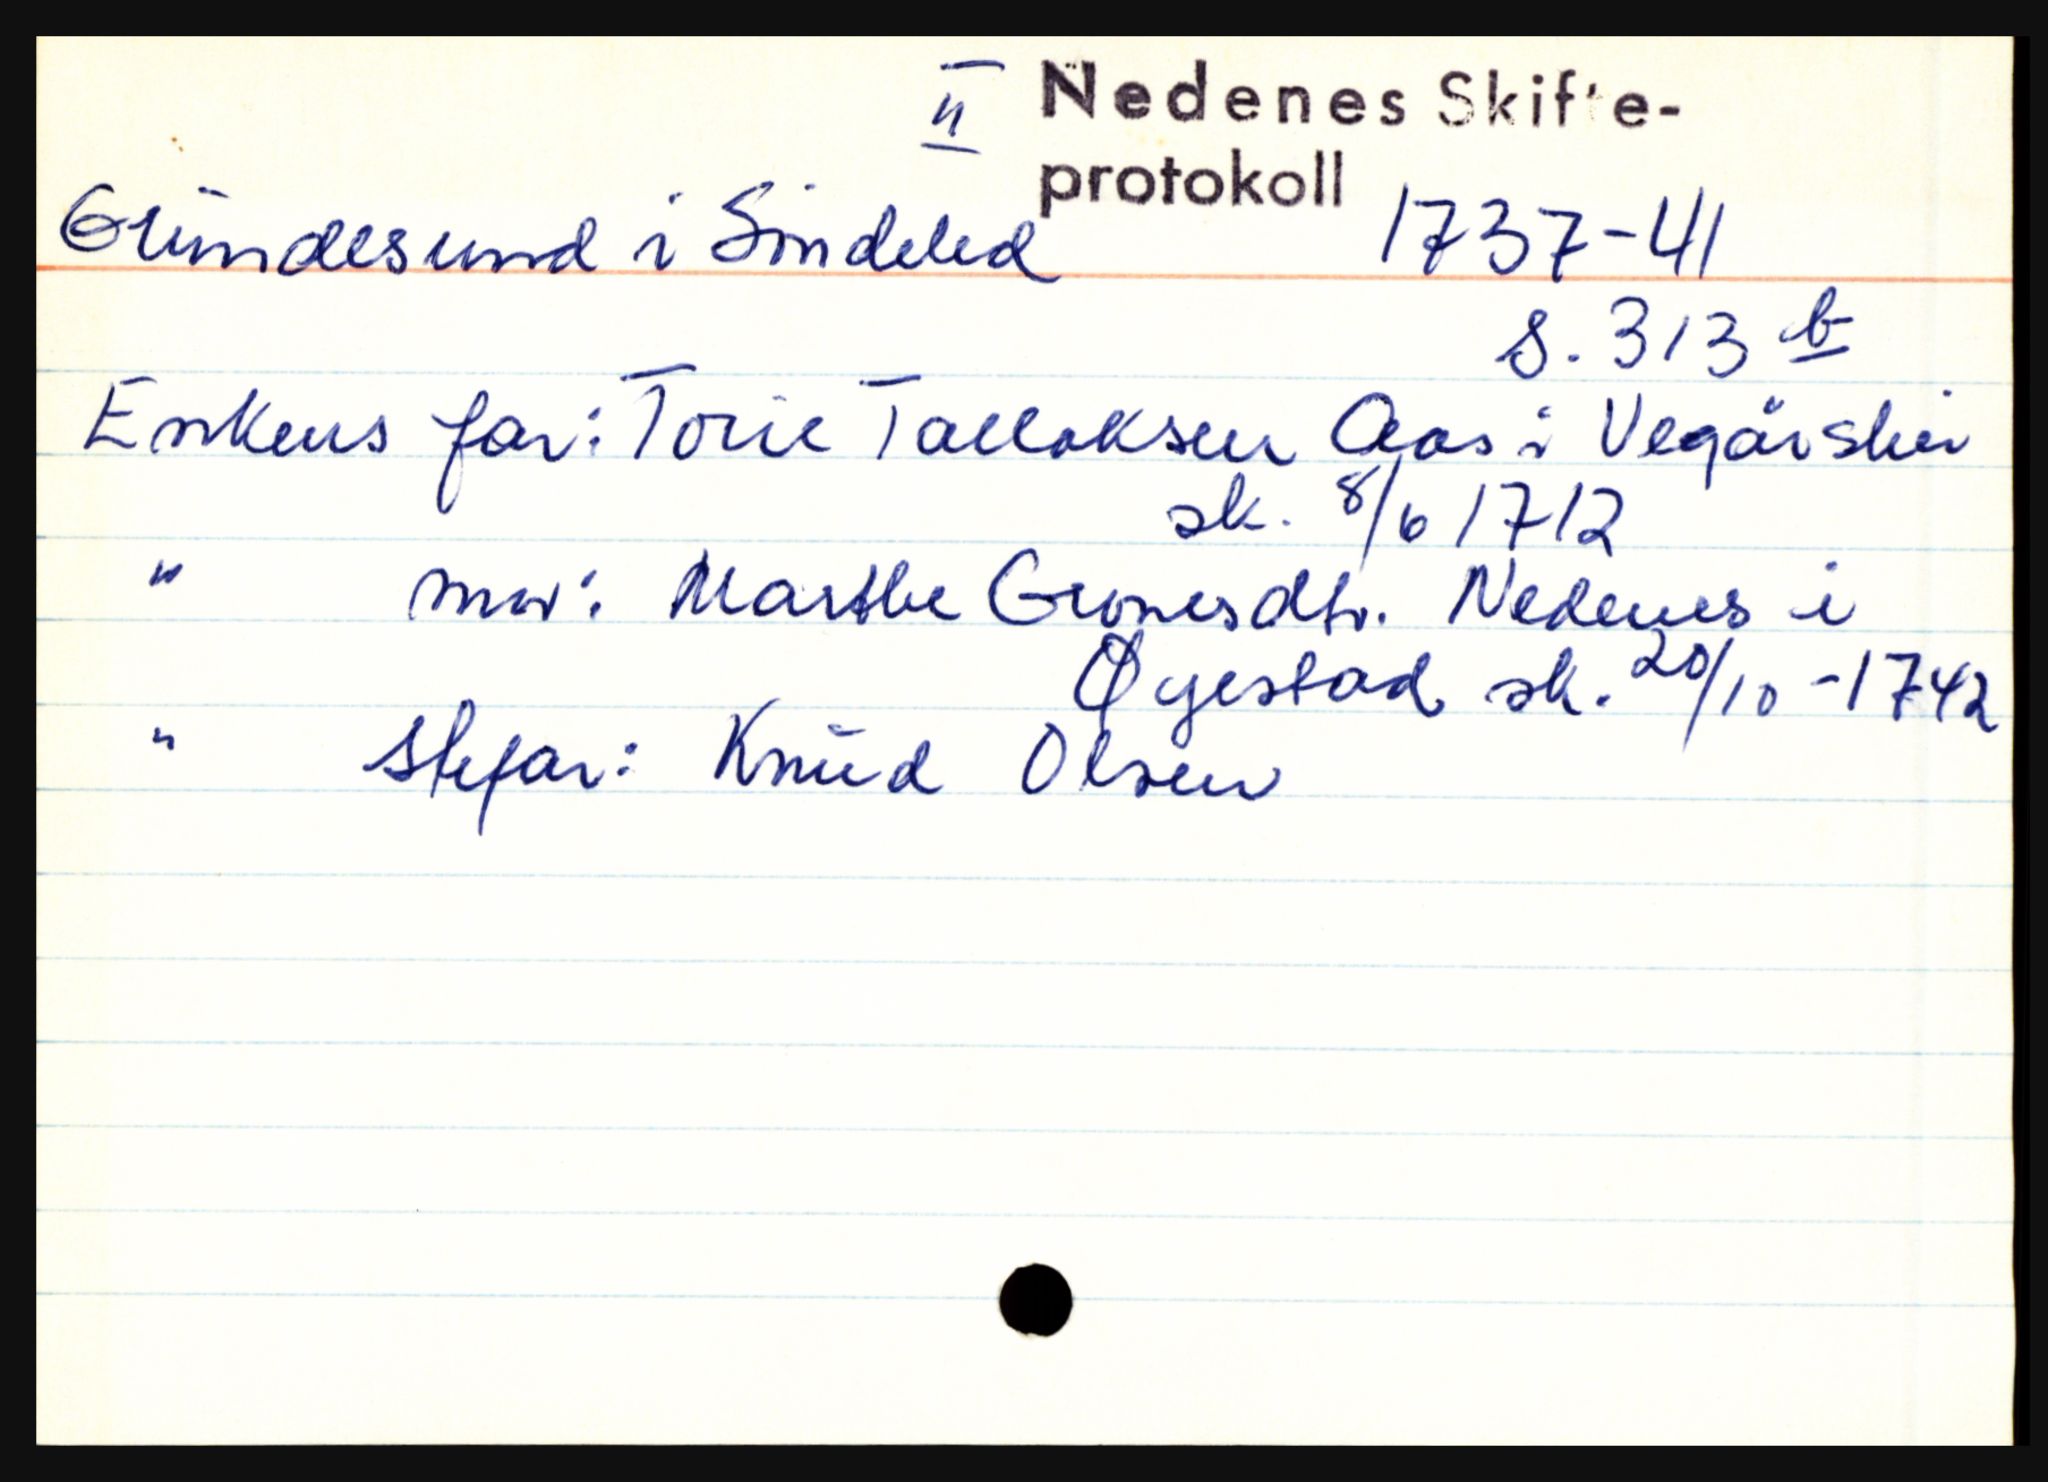 II Nedenes Skifte-
protokoll
Grimdesund i Sindeled 1737-41
s. 313 b
Enkens far: Torie Tallaksen Aas i Vegårshei
sk. 8/6 1712
" mor: Marthe Gronesdtr. Nedenes i
Øyestad sk. 20/10 -1742
" stefar: Knud Olsen